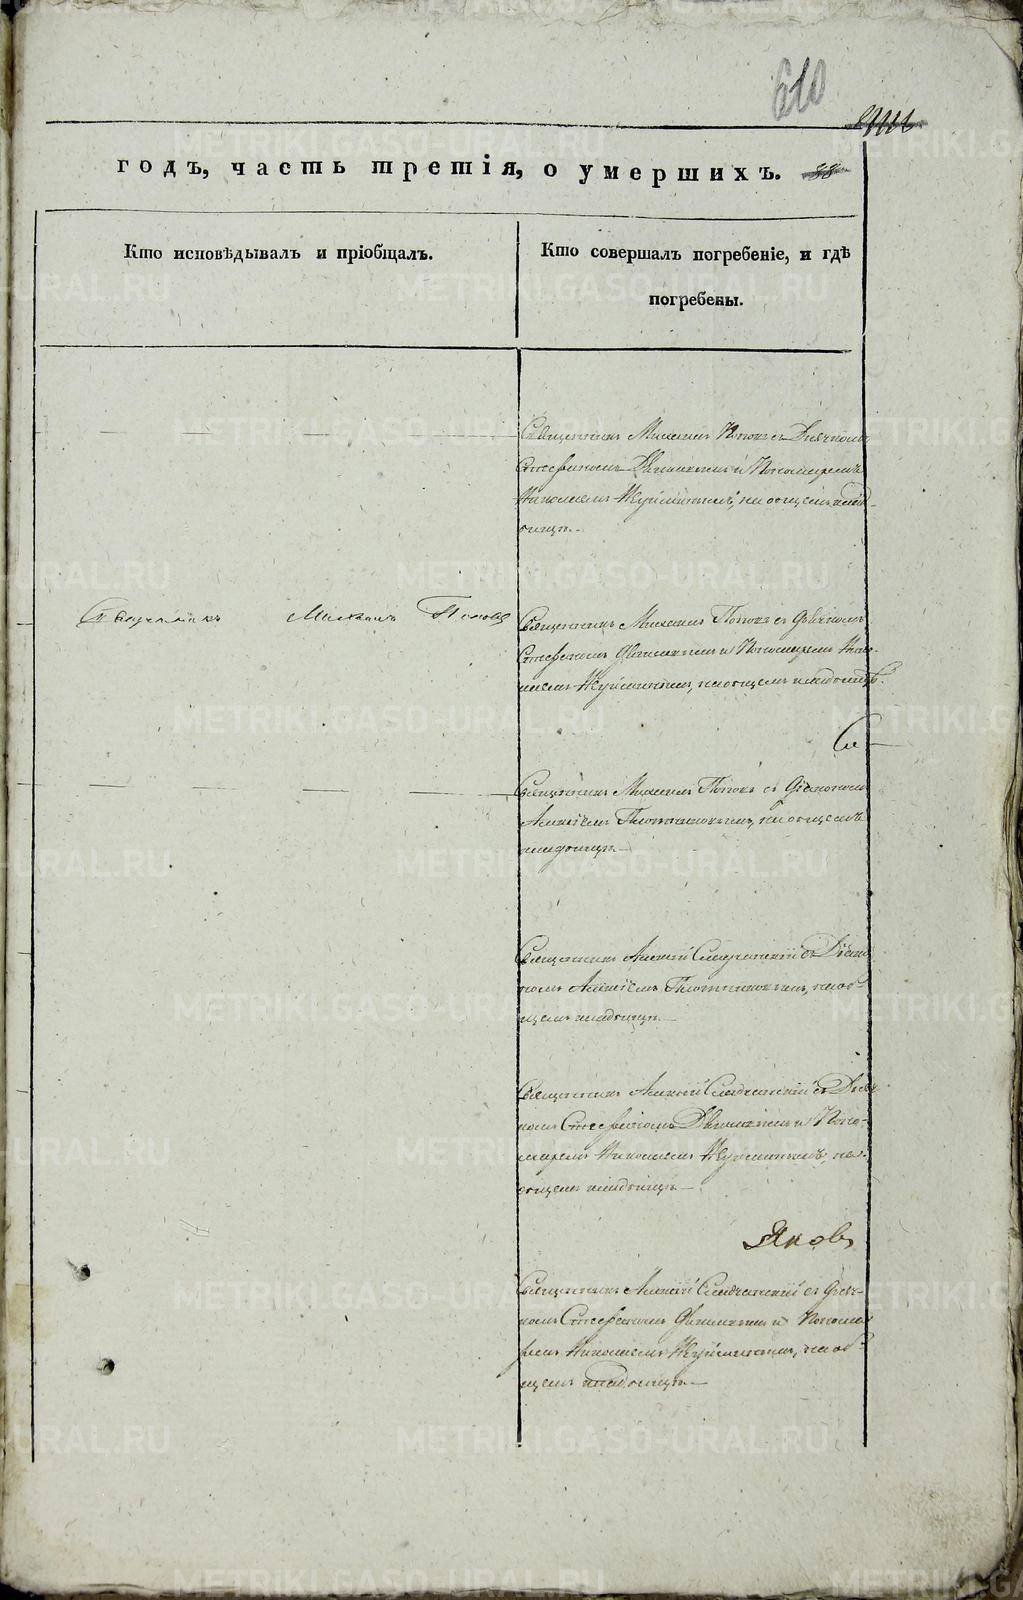 610
годъ, часть третія, о умершихъ.
Кто исповѣдывалъ и пріобщалъ.
Кто совершалъ погребеніе, и гдѣ
погребены.
Священникъ Михаилъ Поповъ съ Дьячкомъ
Стефаномъ и Пономаремъ
Николаемъ на общемъ клад-
бищѣ.
Священникъ Михаилъ Поповъ
Священникъ Михаилъ Поповъ съ Дьячкомъ
Стефаномъ и Пономаремъ Нико-
лаемъ на общемъ кладбищѣ.
Священникъ Михаилъ Поповъ съ Діакономъ
Алексіемъ Плотниковымъ, на общемъ
кладбищѣ
Священникъ Алексій съ Діако-
номъ Алексіемъ Плотниковымъ, на об-
щемъ кладбищѣ
Священникъ Алексій съ Дьяч-
комъ Стефаномъ и Поно-
маремъ Николаемъ на
общемъ кладбищѣ
Яковъ
Священникъ Алексій съ Дьяч-
комъ Стефаномъ и Понома-
ремъ Николаемъ на об-
щемъ кладбищѣ
METRIKI.GASO-URAL.RU